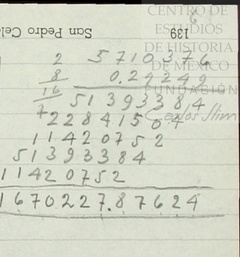 CENTRO DE
ESTUDIOS
DE HISTORIA
DE MÉXICO
FUNDACIÓN
Carlos Slim
San Pedro Cel
139
2 5710376
8 0.29249
16 51393384
7 22841504
11420752
51393384
11420752
1670227.87624